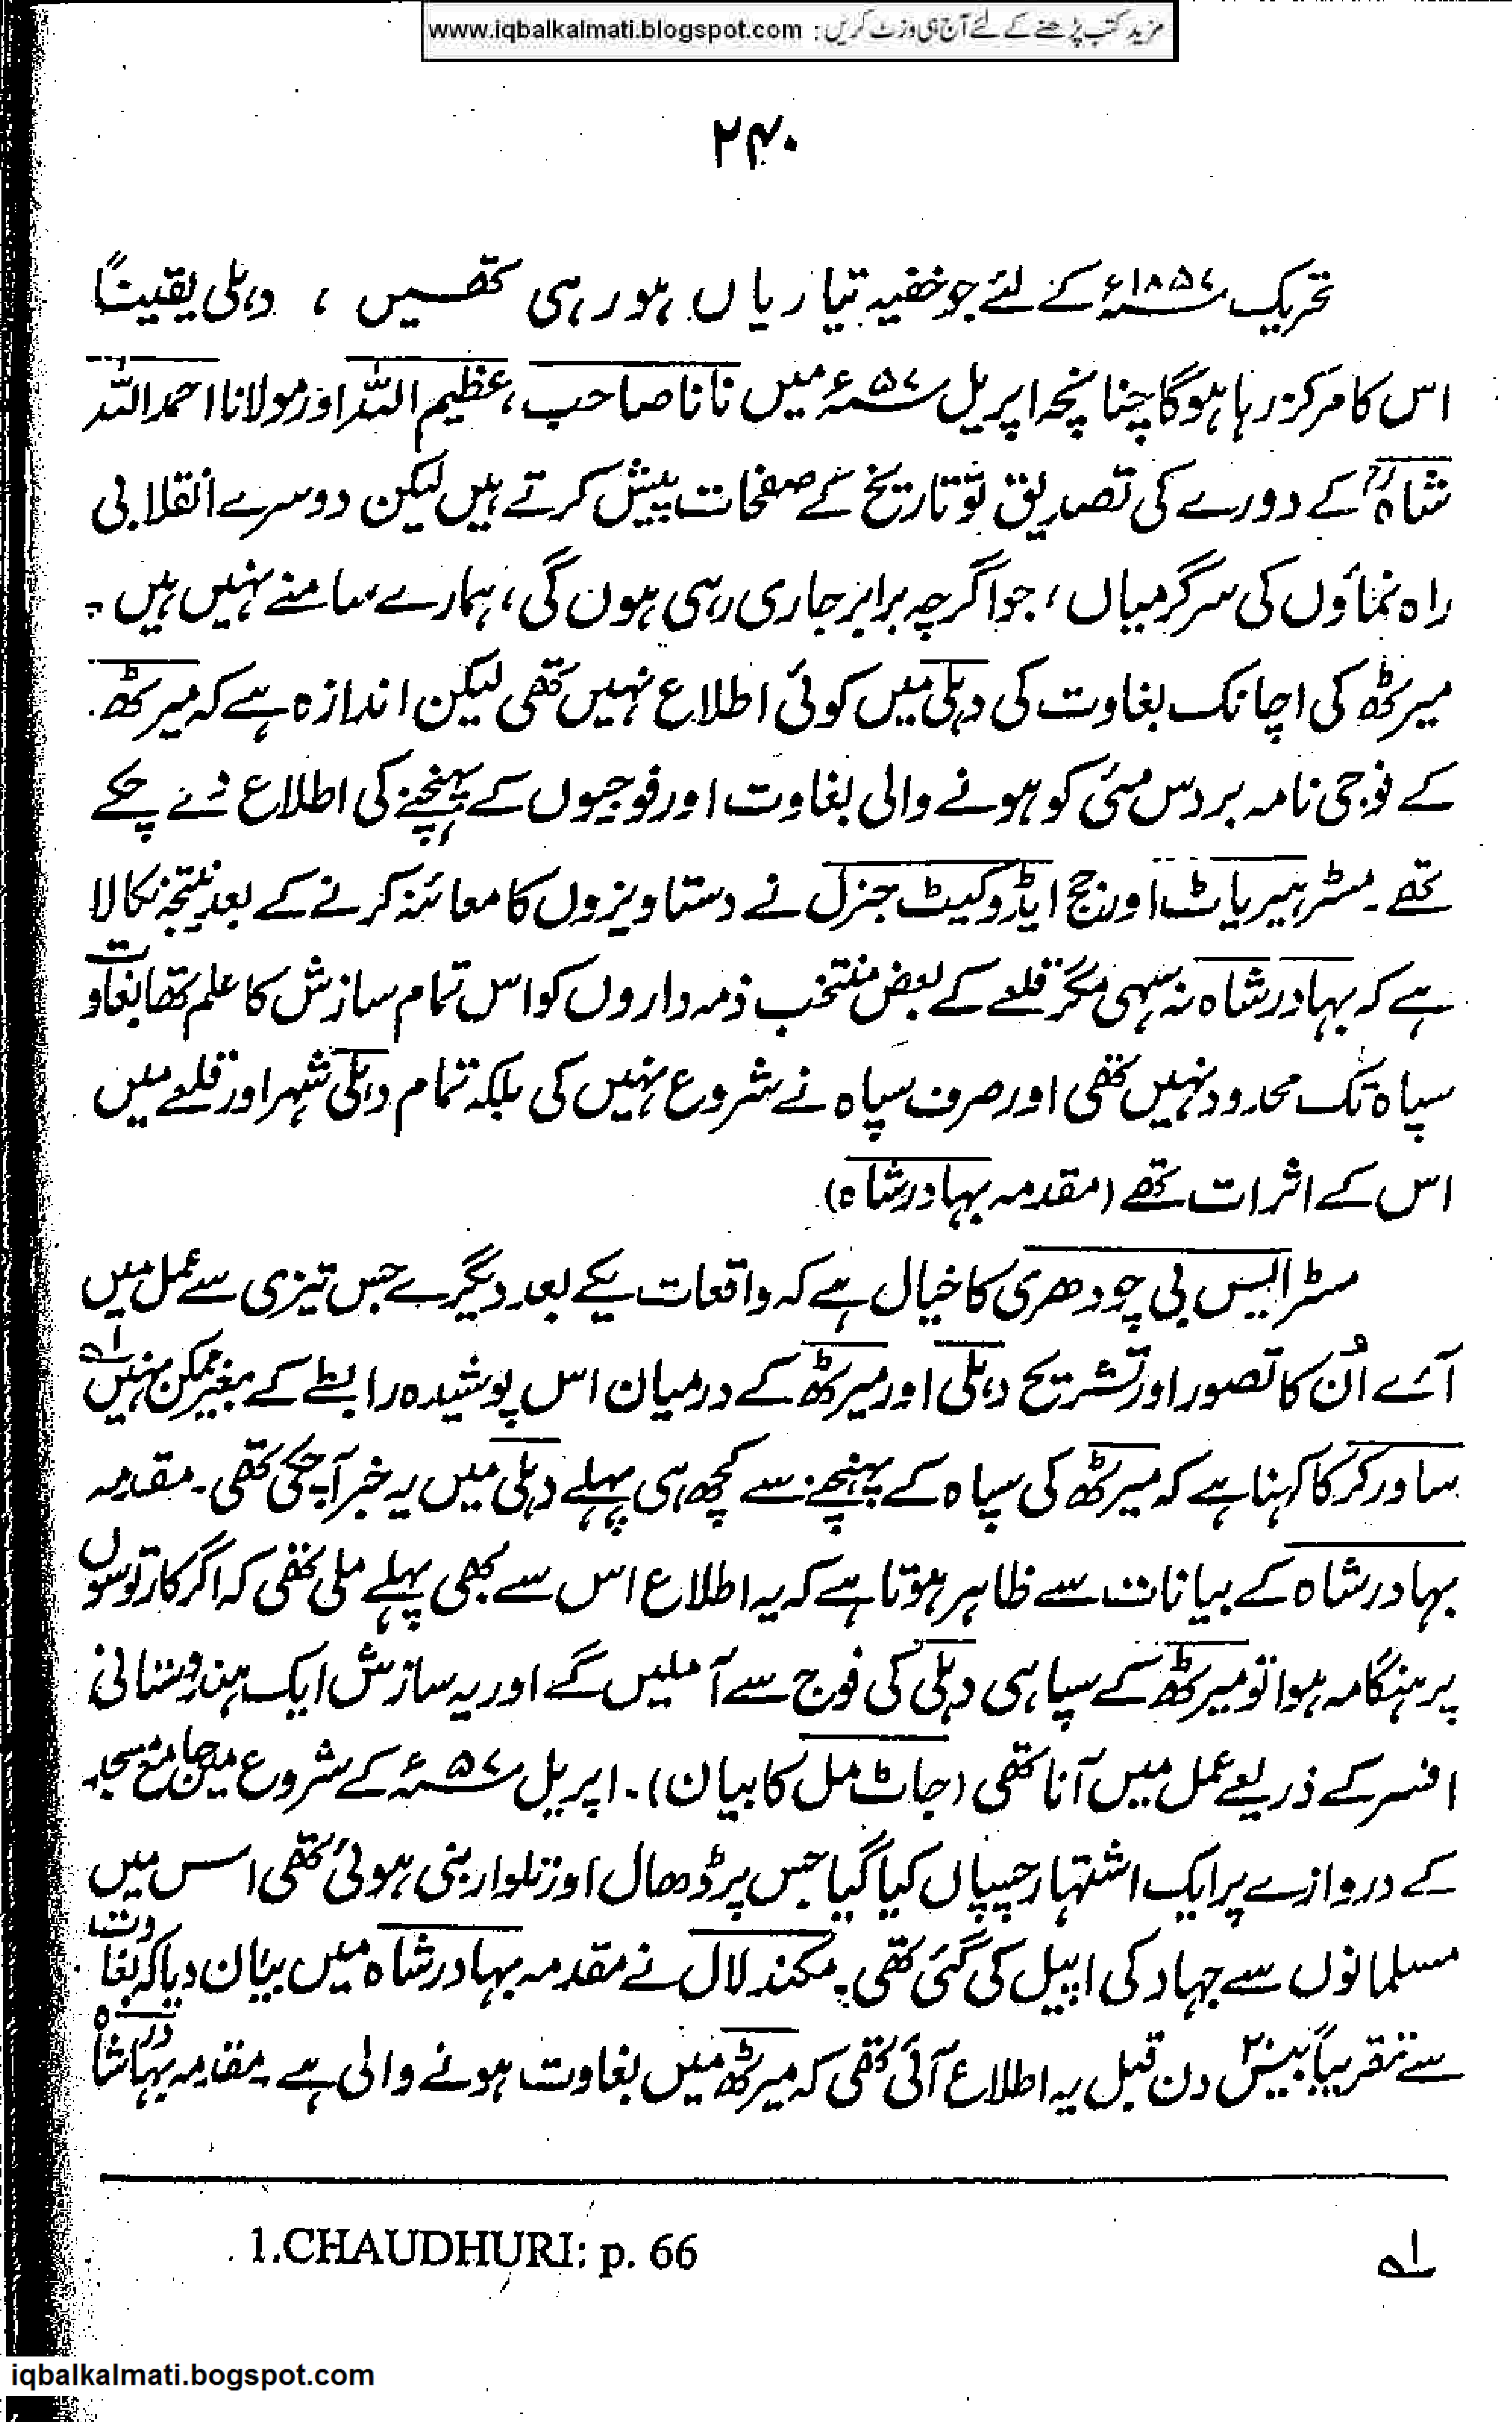 مزید کتب پڑھنے کے لئے آج ہی وزٹ کریں : www.iqbalkalmati.blogspot.com
۲۴۰
تحریک ۱۸۵۷ء کے لئے جو خفیہ تیاریاں ہو رہی تھیں ، دہلی یقیناً
اس کا مرکز رہا ہوگا چنانچہ اپریل ۵۷ء میں نانا صاحب، عظیم اللہ اور مولانا احمد اللہ
شاہؒ کے دورے کی تصدیق تو تاریخ کے صفحات پیش کرتے ہیں لیکن دوسرے انقلابی
راہ نماؤں کی سرگرمیاں، جو اگرچہ برابر جاری رہی ہوں گی، ہمارے سامنے نہیں ہیں۔
میرٹھ کی اچانک بغاوت کی دہلی میں کوئی اطلاع نہیں تھی لیکن اندازہ ہے کہ میرٹھ
کے فوجی نامہ بر دس مئی کو ہونے والی بغاوت اور فوجیوں کے پہنچنے کی اطلاع دے چکے
تھے۔ مسٹر ہیریاٹ اور جج ایڈوکیٹ جنرل نے دستاویزوں کا معائنہ کرنے کے بعد نتیجہ نکالا
ہے کہ بہادر شاہ نہ سہی مگر قلعے کے بعض منتخب ذمہ داروں کو اس تمام سازش کا علم تھا بغاوت
سپاہ تک محدود نہیں تھی اور صرف سپاہ نے شروع نہیں کی بلکہ تمام دہلی شہر اور قلعے میں
اس کے اثرات تھے (مقدمہ بہادر شاہ)
مسٹر ایس بی چودھری کا خیال ہے کہ واقعات یکے بعد دیگرے جس تیزی سے عمل میں
آئے اُن کا تصور اور تشریح دہلی اور میرٹھ کے درمیان اس پوشیدہ رابطے کے بغیر ممکن نہیں ۱؎
ساورکر کا کہنا ہے کہ میرٹھ کی سپاہ کے پہنچنے سے کچھ ہی پہلے دہلی میں یہ خبر آ چکی تھی۔ مقدمہ
بہادر شاہ کے بیانات سے ظاہر ہوتا ہے کہ یہ اطلاع اس سے بھی پہلے ملی تھی کہ اگر کارتوسوں
پر ہنگامہ ہوا تو میرٹھ کے سپاہی دہلی کی فوج سے آ ملیں گے اور یہ سازش ایک ہندوستانی
افسر کے ذریعے عمل میں آنا تھی (جاٹ مل کا بیان)۔ اپریل ۵۷ء کے شروع میں جامع مسجد
کے دروازے پر ایک اشتہار چسپاں کیا گیا جس پر ڈھال اور تلوار بنی ہوئی تھی اس میں
مسلمانوں سے جہاد کی اپیل کی گئی تھی۔ مکند لال نے مقدمہ بہادر شاہ میں بیان دیا کہ بغاوت
سے تقریباً بیس ۲۰ دن قبل یہ اطلاع آئی تھی کہ میرٹھ میں بغاوت ہونے والی ہے۔ مقدمہ بہادر شاہ
۱؎ 1.CHAUDHURI: p. 66
iqbalkalmati.bogspot.com